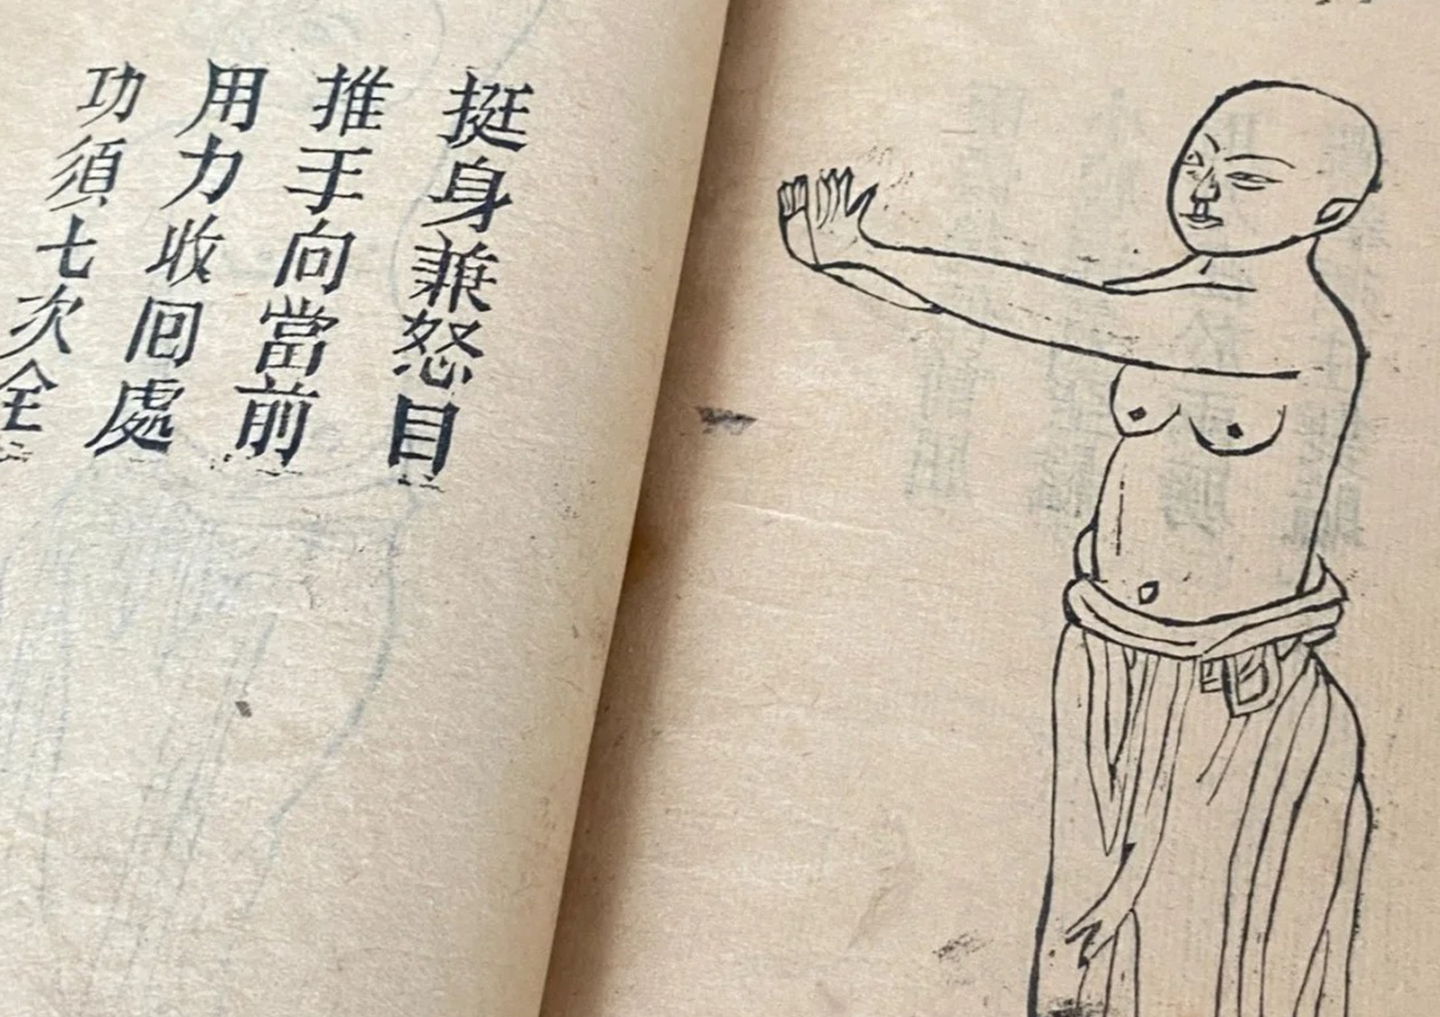 挺身兼怒目
推手向當前
用力收回處
功須七次全